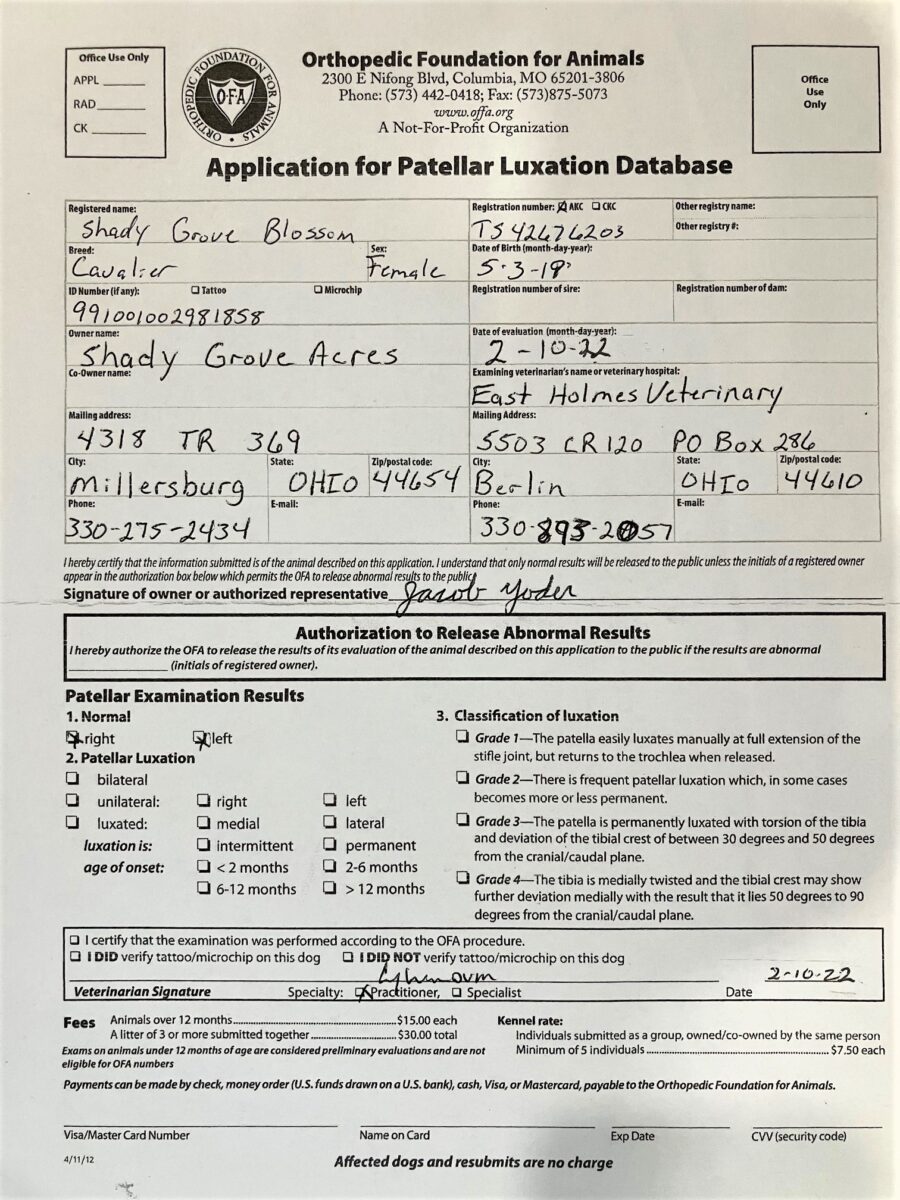 Office Use Only
APPL
RAD
CK
ORTHOPEDIC FOUNDATION FOR ANIMALS
OFA
Orthopedic Foundation for Animals
2300 E Nifong Blvd, Columbia, MO 65201-3806
Phone: (573) 442-0418; Fax: (573)875-5073
www.offa.org
A Not-For-Profit Organization
Office
Use
Only
Application for Patellar Luxation Database
Registered name:
Shady Grove Blossom
Registration number: AKC CKC
TS42676203
Other registry name:
Other registry #:
Breed:
Cavalier
Sex:
Female
Date of Birth (month-day-year):
5-3-19
ID Number (if any): Tattoo Microchip
991001002981858
Registration number of sire:
Registration number of dam:
Owner name:
Shady Grove Acres
Date of evaluation (month-day-year):
2-10-22
Co-Owner name:
Examining veterinarian's name or veterinary hospital:
East Holmes Veterinary
Mailing address:
4318 TR 369
Mailing Address:
5503 CR 120 PO Box 286
City:
Millersburg
State:
OHIO
Zip/postal code:
44654
City:
Berlin
State:
OHIO
Zip/postal code:
44610
Phone:
330-275-2434
E-mail:
Phone:
330-893-2057
E-mail:
I hereby certify that the information submitted is of the animal described on this application. I understand that only normal results will be released to the public unless the initials of a registered owner
appear in the authorization box below which permits the OFA to release abnormal results to the public.
Signature of owner or authorized representative Jacob Yoder
Authorization to Release Abnormal Results
I hereby authorize the OFA to release the results of its evaluation of the animal described on this application to the public if the results are abnormal
(initials of registered owner).
Patellar Examination Results
1. Normal
right left
2. Patellar Luxation
bilateral
unilateral: right left
luxated: medial lateral
luxation is: intermittent permanent
age of onset: < 2 months 2-6 months
6-12 months > 12 months
3. Classification of luxation
Grade 1—The patella easily luxates manually at full extension of the
stifle joint, but returns to the trochlea when released.
Grade 2—There is frequent patellar luxation which, in some cases
becomes more or less permanent.
Grade 3—The patella is permanently luxated with torsion of the tibia
and deviation of the tibial crest of between 30 degrees and 50 degrees
from the cranial/caudal plane.
Grade 4—The tibia is medially twisted and the tibial crest may show
further deviation medially with the result that it lies 50 degrees to 90
degrees from the cranial/caudal plane.
I certify that the examination was performed according to the OFA procedure.
I DID verify tattoo/microchip on this dog I DID NOT verify tattoo/microchip on this dog
2-10-22
Veterinarian Signature Specialty: Practitioner, Specialist Date
Fees
Animals over 12 months $15.00 each
A litter of 3 or more submitted together $30.00 total
Exams on animals under 12 months of age are considered preliminary evaluations and are not
eligible for OFA numbers
Kennel rate:
Individuals submitted as a group, owned/co-owned by the same person
Minimum of 5 individuals $7.50 each
Payments can be made by check, money order (U.S. funds drawn on a U.S. bank), cash, Visa, or Mastercard, payable to the Orthopedic Foundation for Animals.
Visa/Master Card Number Name on Card Exp Date CVV (security code)
4/11/12
Affected dogs and resubmits are no charge